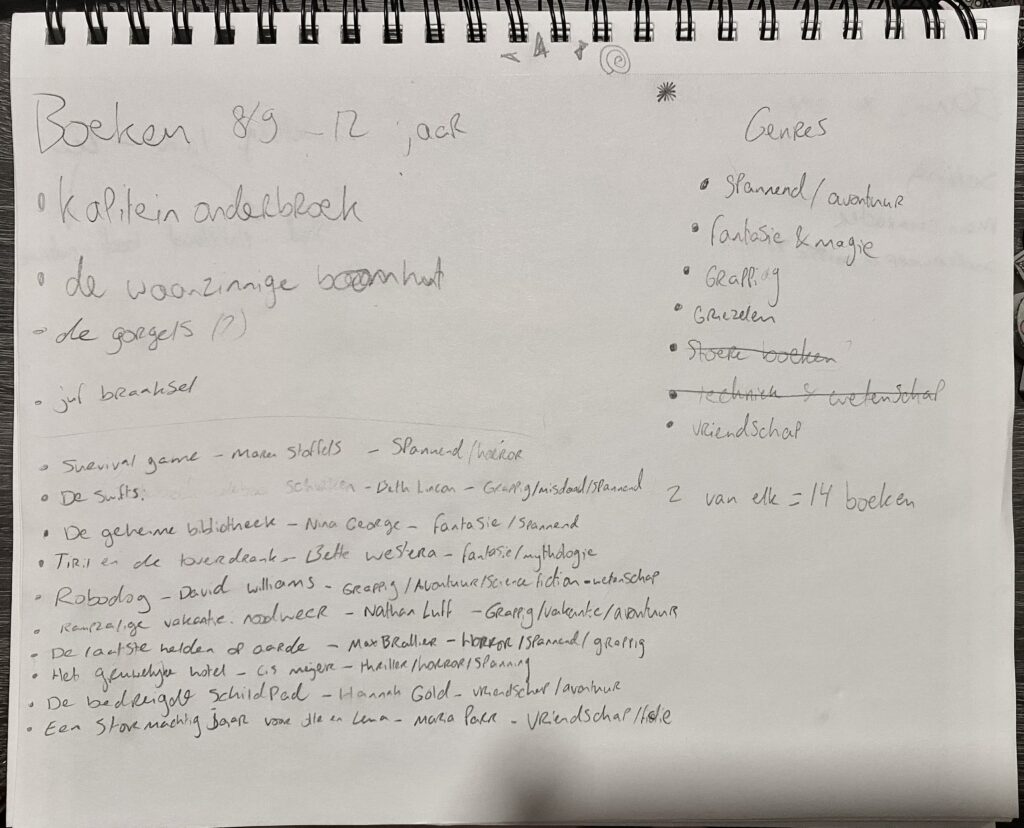 Boeken 8/9 - 12 jaar
• kapitein onderbroek
• de waanzinnige boomhut
• de gorgels (?)
• juf braaksel
• Survival game - Maren Stoffels - Spannend/horror
• De Swifts. - Beth Lincon - Grappig/misdaad/spannend
• De geheime bibliotheek - Nina George - fantasie/spannend
• Tiril en de toverdrank - Bette westera - fantasie/mythologie
• Robodog - David williams - Grappig/Avontuur/science fiction-wetenschap
• Rampzalige vakantie. noodweer - Nathan Luff - Grappig/vakantie/avontuur
• De laatste helden op aarde - Max Brallier - Horror/spannend/grappig
• Het gruwelijke hotel - Cis meijer - thriller/horror/spanning
• De bedreigde schildpad - Hannah Gold - vriendschap/avontuur
• Een stormachtig jaar voor en Lena - Maria Parr - Vriendschap/
Genres
• Spannend/avontuur
• fantasie & magie
• Grappig
• Griezelen
• Stoere boeken
• techniek & wetenschap
• vriendschap
2 van elk = 14 boeken